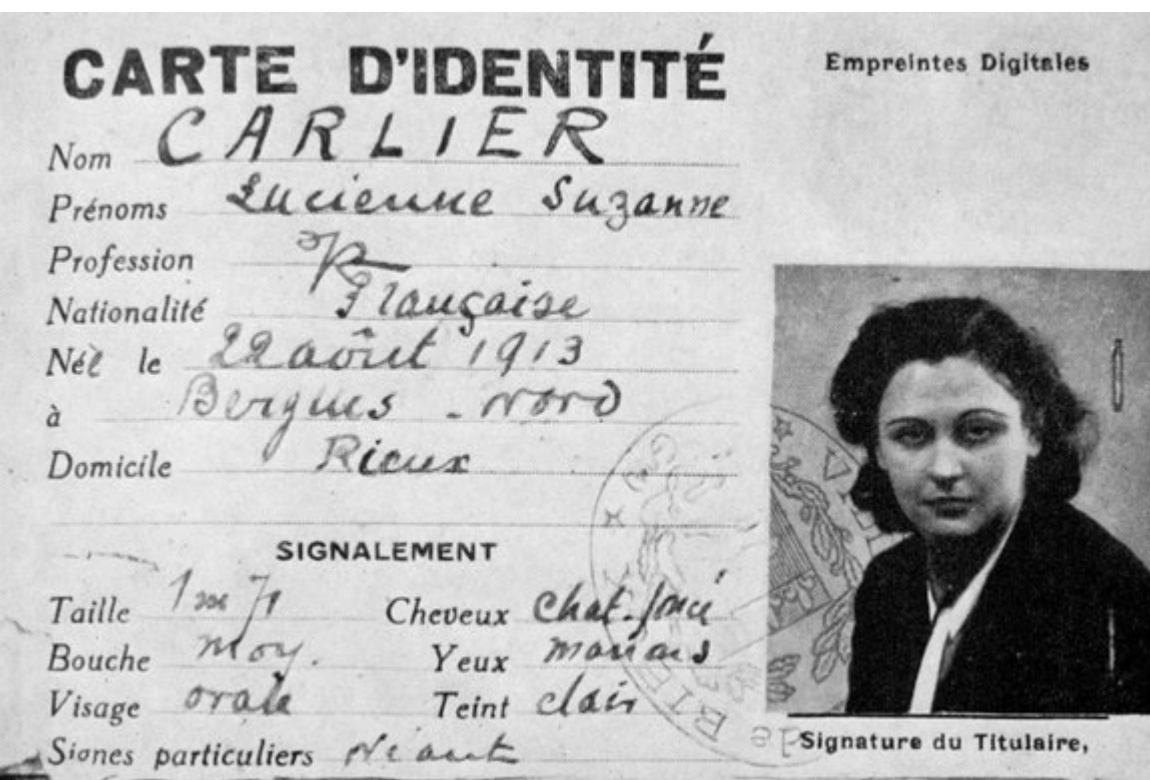 CARTE D'IDENTITÉ
Empreintes Digitales
Nom CARLIER
Prénoms Lucienne Suzanne
Profession
Nationalité Française
Néé le 22 août 1913
à Bergues - Nord
Domicile Rieux
SIGNALEMENT
Taille 1m71 Cheveux chat. foncé
Bouche moy. Yeux marrons
Visage ovale Teint clair
Signes particuliers Néant
Signature du Titulaire,